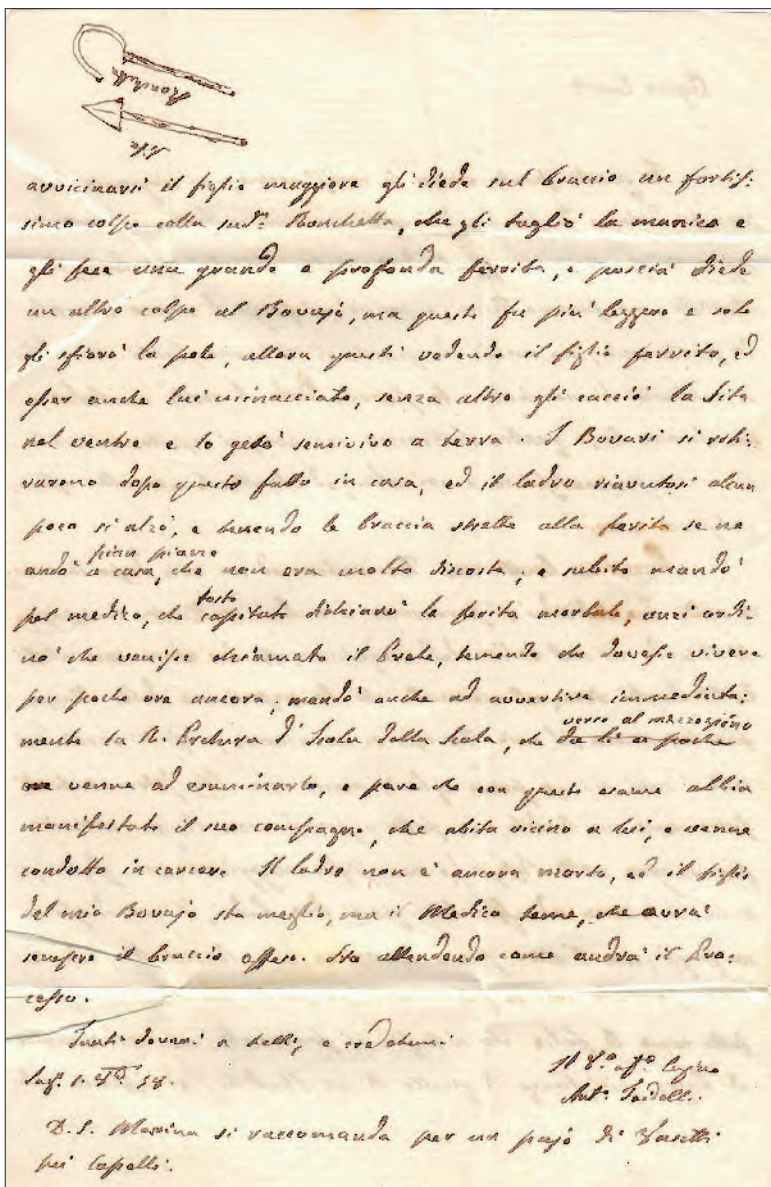 Ronchetta
Sita
avvicinarsi il figlio maggiore gli diede sul braccio un fortis:
simo colpo colla sud.a Ronchetta, che gli tagliò la manica e
gli fece una grande e profonda ferrita, e poscia diede
un altro colpo al Bovajo, ma questo fu piu' leggero e solo
gli sfiorò la pele, allora questi vedendo il figlio ferrito, ed
esser anche lui minacciato, senza altro gli cacciò la Sita
nel ventre e lo getò semivivo a terra. I Bovari si reti:
rarono dopo questo fatto in casa, ed il ladro riavutosi alcun
poco si alzò, e tenendo le braccia strette alla ferita se ne
andò pian piano a casa, che non era molto discosta; e subito mandò
pel medico, che tosto capitato dichiarò la ferita mortale, anzi ordi:
nò che venisse chiamato il Prete, temendo che dovesse vivere
per poche ore ancora; mandò anche ad avvertire immediata:
mente la R. Pretura d' Isola della Scala, che verso al mezzogiorno da lì a poche
ore venne ad esaminarlo, e pare che con questo esame abbia
manifestato il suo compagno, che abita vicino a lui, e venne
condotto in carcere. Il ladro non è ancora morto, ed il figlio
del mio Bovajo sta meglio, ma il Medico teme, che avrà
sempre il braccio offeso. Sto attendendo come andrà il Pro:
cesso.
Tanti doveri a tutti, e credetemi
58.
Il V.o aff.o Cugino
Ant.o
P.S. Marina si raccomanda per un pajo di Vasetti
pei Capelli.